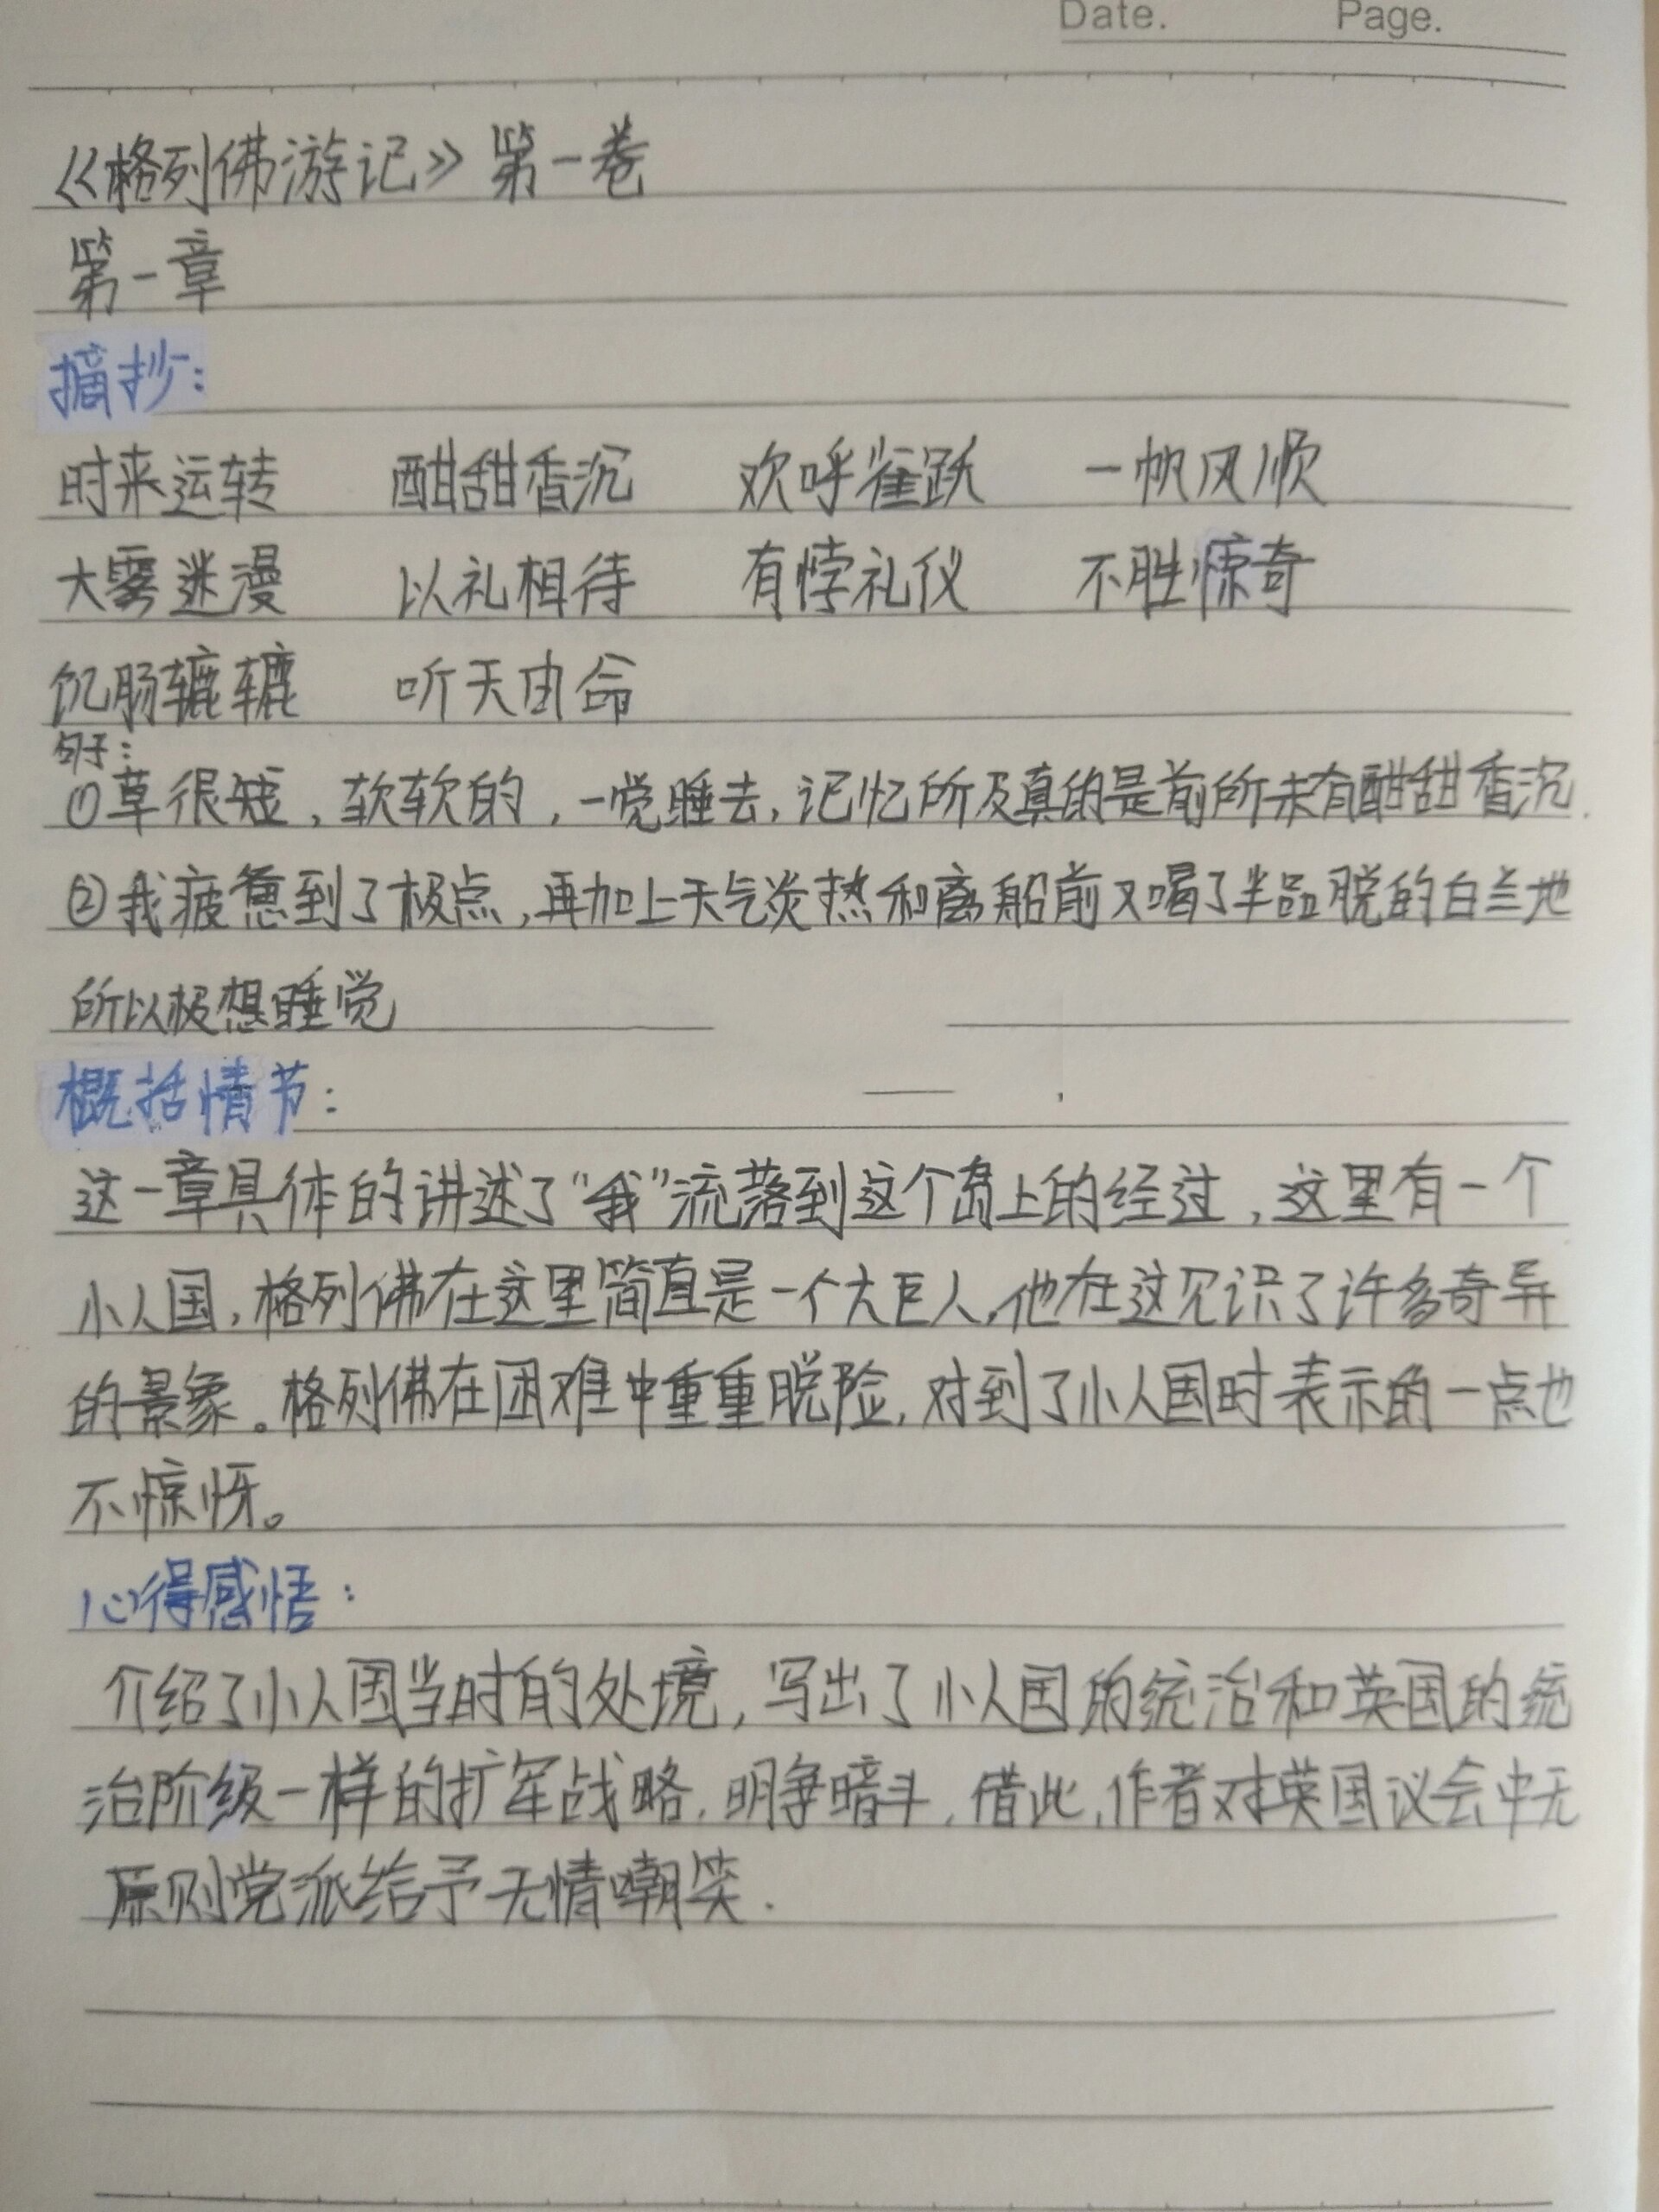 Date. Page.
《格列佛游记》第一卷
第一章
摘抄:
时来运转 酣甜香沉 欢呼雀跃 一帆风顺
大雾迷漫 以礼相待 有悖礼仪 不胜惊奇
饥肠辘辘 听天由命
句子:
①草很短,软软的,一觉睡去,记忆所及真的是前所未有酣甜香沉.
②我疲惫到了极点,再加上天气炎热和离船前又喝了半品脱的白兰地
所以极想睡觉
概括情节:
这一章具体的讲述了“我”流落到这个岛上的经过,这里有一个
小人国,格列佛在这里简直是一个大巨人,他在这见识了许多奇异
的景象。格列佛在困难中重重脱险,对到了小人国时表示的一点也
不惊讶。
心得感悟:
介绍了小人国当时的处境,写出了小人国的统治和英国的统
治阶级一样的扩军战略,明争暗斗,借此,作者对英国议会中无
原则党派给予无情嘲笑.